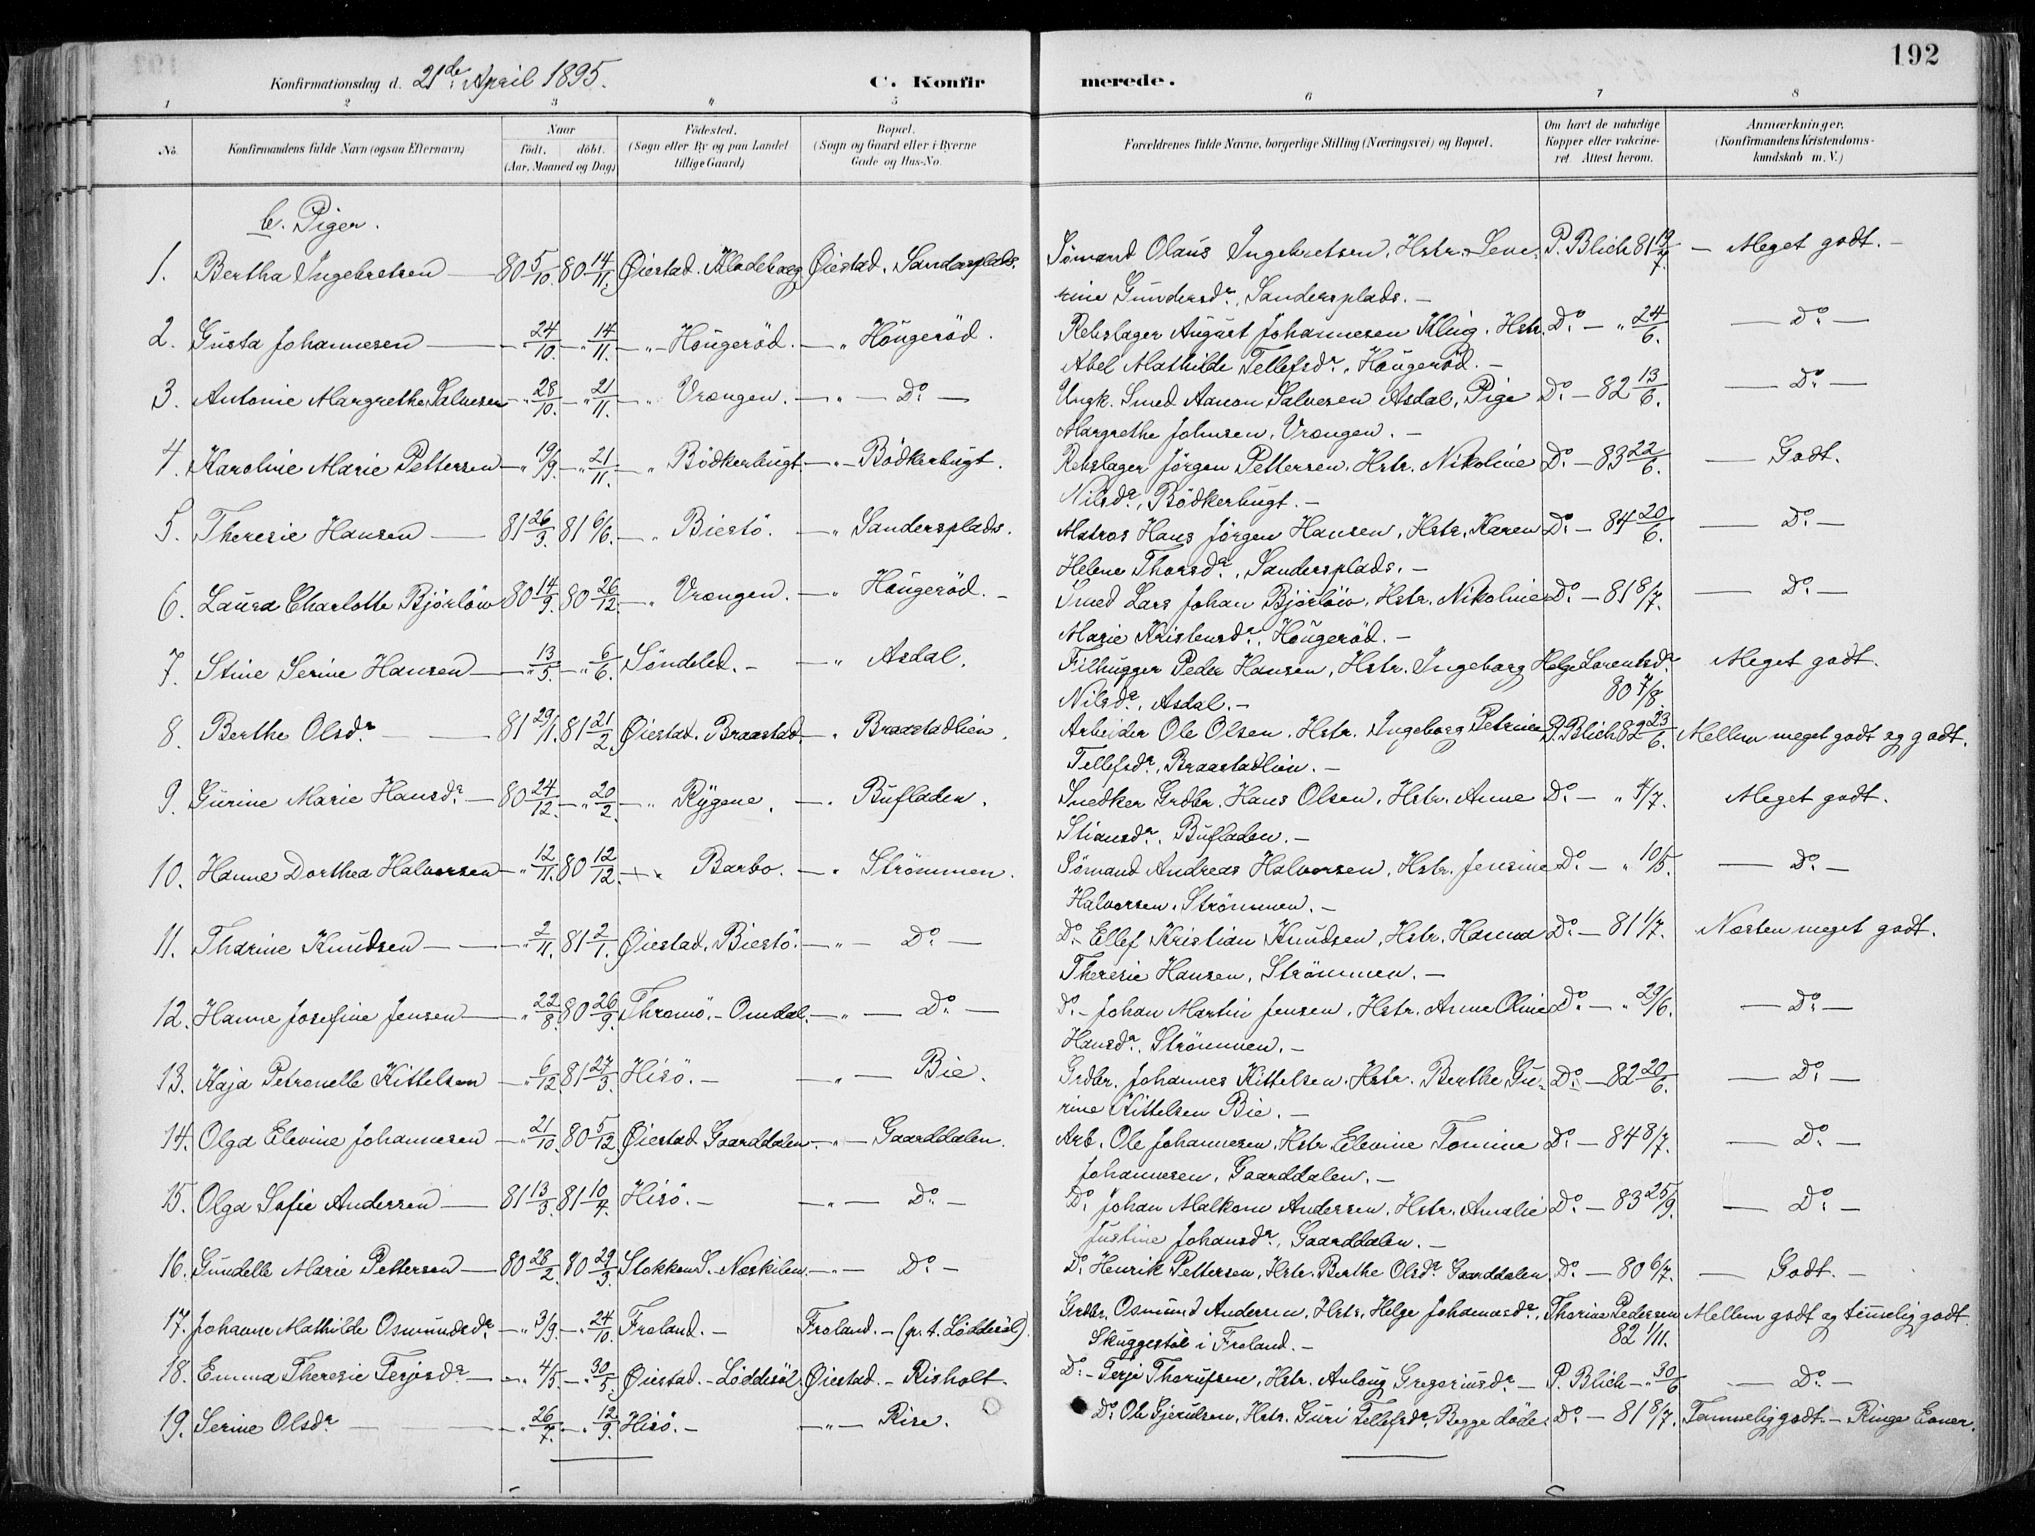 192
Konfirmationsdag d. 21de April 1895.
C. Konfirmerede.
1 2 3 4 5 6 7 8
No.
Konfirmandens fulde Navn (ogsaa Efternavn)
Naar født. døbt. (Aar, Maaned og Dag)
Fødested. (Sogn eller By og paa Landet tillige Gaard)
Bopæl. (Sogn og Gaard eller i Byerne Gade og Hus-No.
Forældrenes fulde Navne, borgerlige Stilling (Næringsvei) og Bopæl.
Om havt de naturlige Kopper eller vakcineret Attest herom.
Anmærkninger. (Konfirmandens Kristendomskundskab m. V.)
b. Piger.
1. Bertha Ingebretsen — 80 5/10. 80 14/11. Øiestad. Klodeborg Øiestad. Sandersplads. Sømand Olaus Ingebretsen, Hstr. Seve- P. Blich 81 19/7. — Meget godt. —
rine Gundersdr., Sandersplads. —
2. Gusta Johannesen — " 24/10. — " 14/11. — " Hougerød. — " Hougerød. Rebslager August Johannesen Klug, Hstr. Do. — " 24/6. — Do. —
Abel Mathilde Tellefsdr., Hougerød. —
3. Antonie Margrethe Salvesen — " 28/10. — " 21/11. — " Vrængen. — " — Do. — Ungk. Smed Aanon Salvesen Asdal, Pige Do. — 82 13/6. — Do. —
Margrethe Johnsen, Vrængen. —
4. Karoline Marie Pettersen — " 19/9. — " 21/11. — " Bødkerbugt. — " — Bødkerbugt. Rebslager Jørgen Pettersen, Hstr. Nikoline Do. — 83 22/6. — Godt.
Nilsdr., Bødkerbugt. —
5. Theresie Hansen — 81 26/3. 81 6/6. — " Biestø. — " Sandersplads. Matros Hans Jørgen Hansen, Hstr. Karen Do. — 84 20/6. — Do. —
Helene Thorsdr., Sandersplads. —
6. Laura Charlotte Bjorløw 80 14/9. 80 26/12. — " Vrængen. — " Hougerød. — Smed Lars Johan Bjørløw, Hstr. Nikoline Do. — 81 8/7. — Do. —
Marie Kristensdr., Hougerød. —
7. Stine Serine Hansen — " 13/5. — " 6/6. Søndeled. — — " Asdal. Filhugger Peder Hansen, Hstr. Ingeborg Helge Lorentsdr. Meget godt.
Nilsdr., Asdal. — 80 7/8.
8. Berthe Olsdr. — 81 29/1. 81 21/2. Øiestad. Braastad. — " Braastadlien. Arbeider Ole Olsen, Hstr. Ingeborg Petrine P. Blich 82 23/6. Mellem meget godt og godt.
Tellefsdr., Braastadlien. —
9. Gurine Marie Hansdr. — 80 24/12. — " 20/2. — " Rygene. — " Bufladen. Snedker Grdbr. Hans Olsen, Hstr. Anne Do. — " 4/7. Meget godt.
Stiansdr., Bufladen. —
10. Hanne Dorthea Halvorsen — " 12/11. 80 12/12. — " Barbo. — " Strømmen. Sømand Andreas Halvorsen, Hstr. Jensine Do. — " 10/5. — Do. —
Halvorsen, Strømmen. —
11. Tharine Knudsen — " 2/11. 81 2/1. Øiestad, Biestø. — " — Do. — Do. Ellef Kristian Knudsen, Hstr. Hanna Do. — 81 1/7. Næsten meget godt.
Theresie Hansen, Strømmen. —
12. Hanne Josefine Jensen — " 22/8. 80 26/9. Thromø. — Omdal. — " — Do. — Do. — Johan Martin Jensen, Hstr. Anne Oline Do. — " 29/6. — Do. —
Hansdr., Strømmen. —
13. Kaja Petronelle Kittelsen — " 6/12. 81 27/3. Hisø. — — " — Bie. Grdbr. Johannes Kittelsen, Hstr. Berthe Gu- Do. — 82 20/6. — Do. —
rine Kittelsen Bie. —
14. Olga Elevine Johannesen — " 21/10. 80 5/12. Øiestad Gaarddalen — " — Gaarddalen. Arb. Ole Johannesen, Hstr. Elevine Tomine Do. — 84 8/7. — Do. —
Johannesen, Gaarddalen. —
15. Olga Sofie Andersen — 81 13/3. 81 10/4. Hisø. — — " — Do. — Do. Johan Malkom Andersen, Hstr. Amalie Do. — 83 25/9. — Do. —
Justine Johansdr., Gaarddalen. —
16. Gundelle Marie Pettersen — 80 28/2. 80 29/3. Stokken S. Næskilen — " — Do. — Do. Henrik Pettersen, Hstr. Berthe Olsdr. Gaarddalen. Do. — 80 6/7. — Godt. —
17. Johanne Mathilde Osmundsdr. — " 3/9. — " 24/10. Froland. — Froland. — (p. t. Løddesøl). Grdbr. Osmund Andersen, Hstr. Helge Johannesdr., Tharine Pedersen Mellem godt og temmelig godt.
Skuggestøl i Froland. — 82 1/11.
18. Emma Theresie Terjesdr. — " 4/5. — " 30/5. Øiestad. — Løddesøl. Øiestad. — Risholt. Do. — Terje Thorufsen, Hstr. Aslaug Gregoriusdr. — P. Blich — " 30/6 — Do. —
19. Serine Olsdr. — " 26/7. — " 12/9. Hisø. — — " — Rise. Do. Ole Gjerulsen, Hstr. Guri Tellefsdr., Begge døde. Do. — 81 8/7. Temmelig godt. — Ringe Evner.